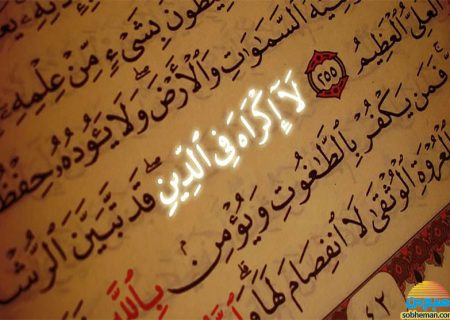 بِشَىْءٍ مِّنْ عِلْمِهِۦٓ
السَّمَٰوَٰتِ وَالْأَرْضَ ۖ وَلَا يَـُٔودُهُۥ حِفْظُ
الْعَلِىُّ الْعَظِيمُ ٢٥٥ لَآ إِكْرَاهَ فِى الدِّينِ ۖ قَد تَّبَيَّنَ الرُّشْ
فَمَن يَكْفُرْ بِالطَّٰغُوتِ وَيُؤْمِنۢ بِاللَّهِ
الْعُرْوَةِ الْوُثْقَىٰ لَا انفِصَامَ لَهَا ۗ
٤٢
sobheman.com